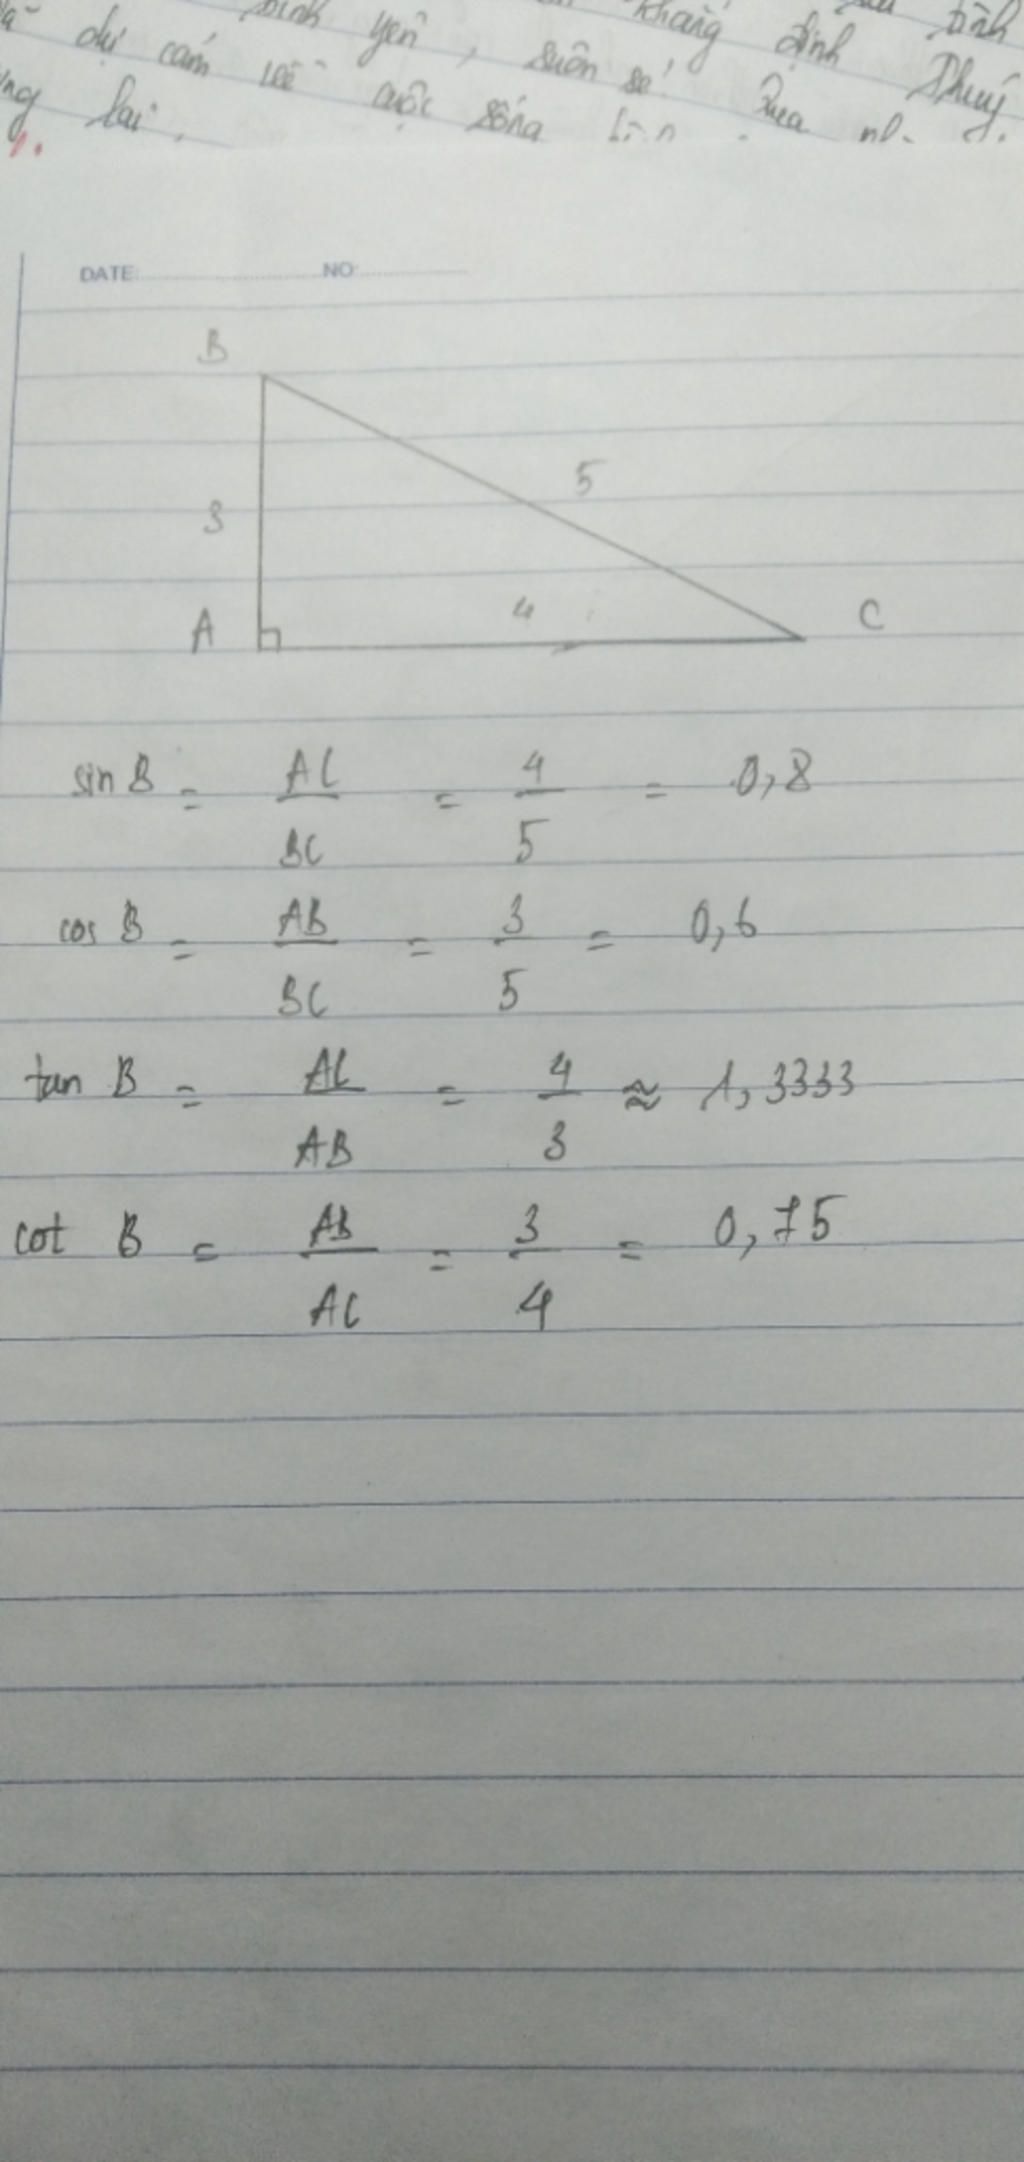 bình yên, suôn sẻ! khẳng định tình
dự cảm về cuộc sống Qua Thuý
lai.
DATE: NO:
B
5
3
4
A
C
sin B = AC/BC = 4/5 = 0,8
cos B = AB/BC = 3/5 = 0,6
tan B = AC/AB = 4/3 ≈ 1,3333
cot B = AB/AC = 3/4 = 0,75